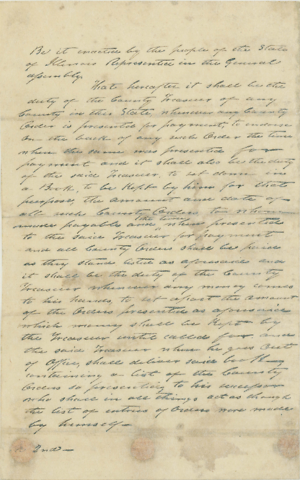 Be it enacted by the people of the State
of Illinois Represented in the General
Assembly
That hereafter it shall be the
duty of the County Treasurer of any
County in this State, whenever any County
Order is presented for payment, to endorse
on the back of any such Order the time
when the same was presented for
payment and it shall also be the duty
of the said Treasurer to set down in
a Book, to be Kept by him for that
purpose, the amount and date of
all such County Orders to whom
made payable and the time when presented
to the said Treasurer for payment
and all County Orders shall be paid
as they stand listed as aforesaid and
it shall be the duty of the County
Treasurer whenever any money comes
to his hands to set apart the amount
of the Orders presented as aforesaid
which money shall be Kept by
the Treasurer until called for and
the said Treasurer when he goes out
of Office, shall deliver said book
containing a list of the County
Orders so presented to his successor
who shall in all things act as though
the list of entries of Orders were made
by himself